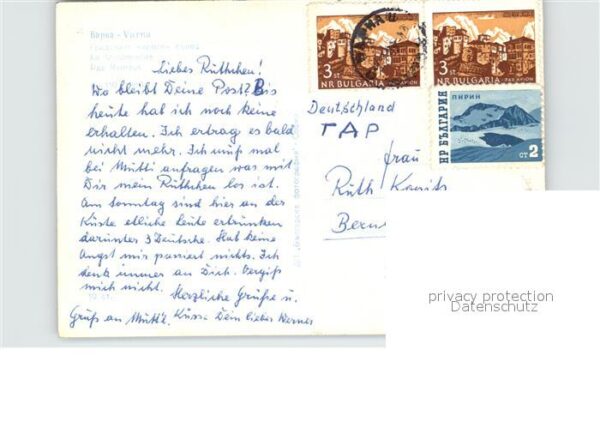 Варна - Varna
Liebes Rüthchen!
Wo bleibt Deine Post? Bis
heute hat ich noch keine
erhalten. Ich ertrag es bald
nicht mehr. Ich muß mal
bei Mutti anfragen was mit
Dir mein Rüthchen los ist.
Am Sonntag sind hier an der
Küste etliche Leute ertrunken
darunter 3 Deutsche. Hab keine
Angst mir passiert nichts. Ich
denk immer an Dich. Vergiß
mich nicht. Herzliche Grüße u.
Gruß an Mutti. Küsse Dein lieber Werner
3 ST.
NR BULGARIA
PAR AVION
3 ST.
NR BULGARIA
PAR AVION
НР БЪЛГАРИЯ
ПИРИН
СТ 2
Deutschland
TAP
Frau
Rüth
Bern
privacy protection
Datenschutz